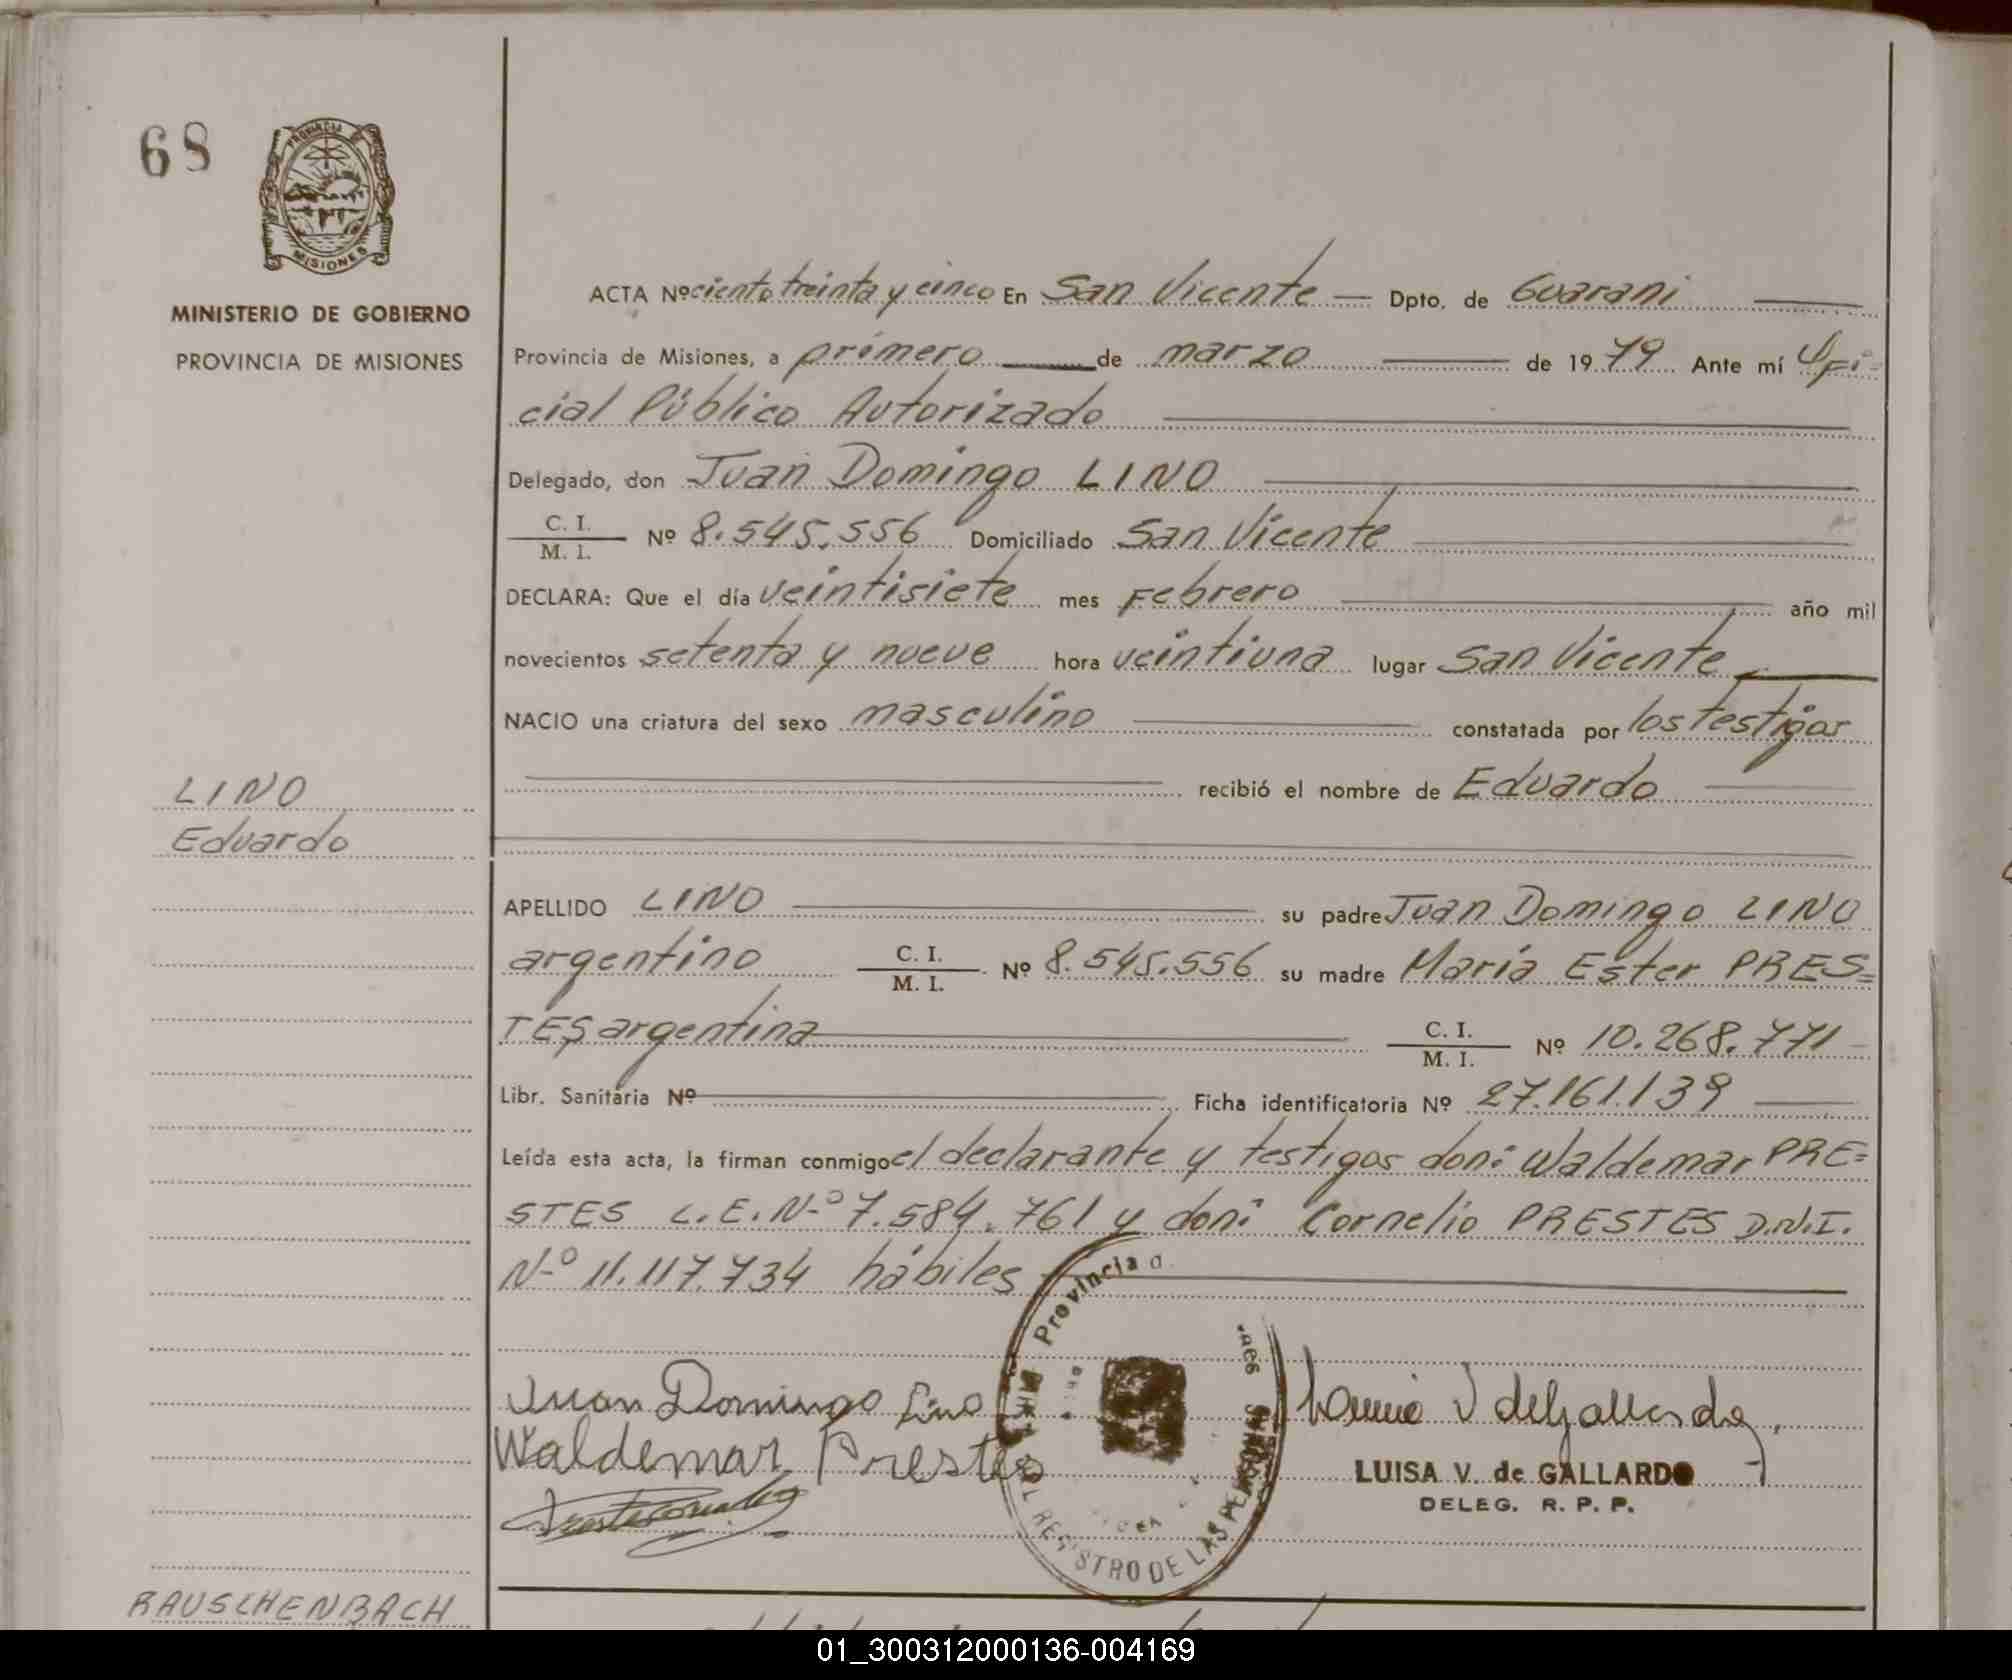 68
PROVINCIA DE
MISIONES
MINISTERIO DE GOBIERNO
PROVINCIA DE MISIONES
ACTA Nº ciento treinta y cinco En San Vicente — Dpto. de Guarani
Provincia de Misiones, a primero de marzo de 1979 Ante mí Ofi=
cial Público Autorizado
Delegado, don Juan Domingo LINO
C. I.
M. I. Nº 8.545.556 Domiciliado San Vicente
DECLARA: Que el día veintisiete mes Febrero año mil
novecientos setenta y nueve hora veintiuna lugar San Vicente
NACIO una criatura del sexo masculino constatada por los testigos
recibió el nombre de Eduardo
LINO
Eduardo
APELLIDO LINO su padre Juan Domingo LINO
argentino C. I.
M. I. Nº 8.545.556 su madre María Ester PRES=
TES argentina C. I.
M. I. Nº 10.268.771
Libr. Sanitaria Nº Ficha identificatoria Nº 27.161.139
Leída esta acta, la firman conmigo el declarante y testigos don: Waldemar PRE=
STES L.E. Nº 7.584.761 y don: Cornelio PRESTES D.N.I.
Nº 11.117.734 hábiles
Provincia
REGISTRO DE LAS
Juan Domingo Lino
Waldemar Prestes
V de Gallardo
LUISA V. de GALLARDO
DELEG. R. P. P.
RAUSCHENBACH
01_300312000136-004169